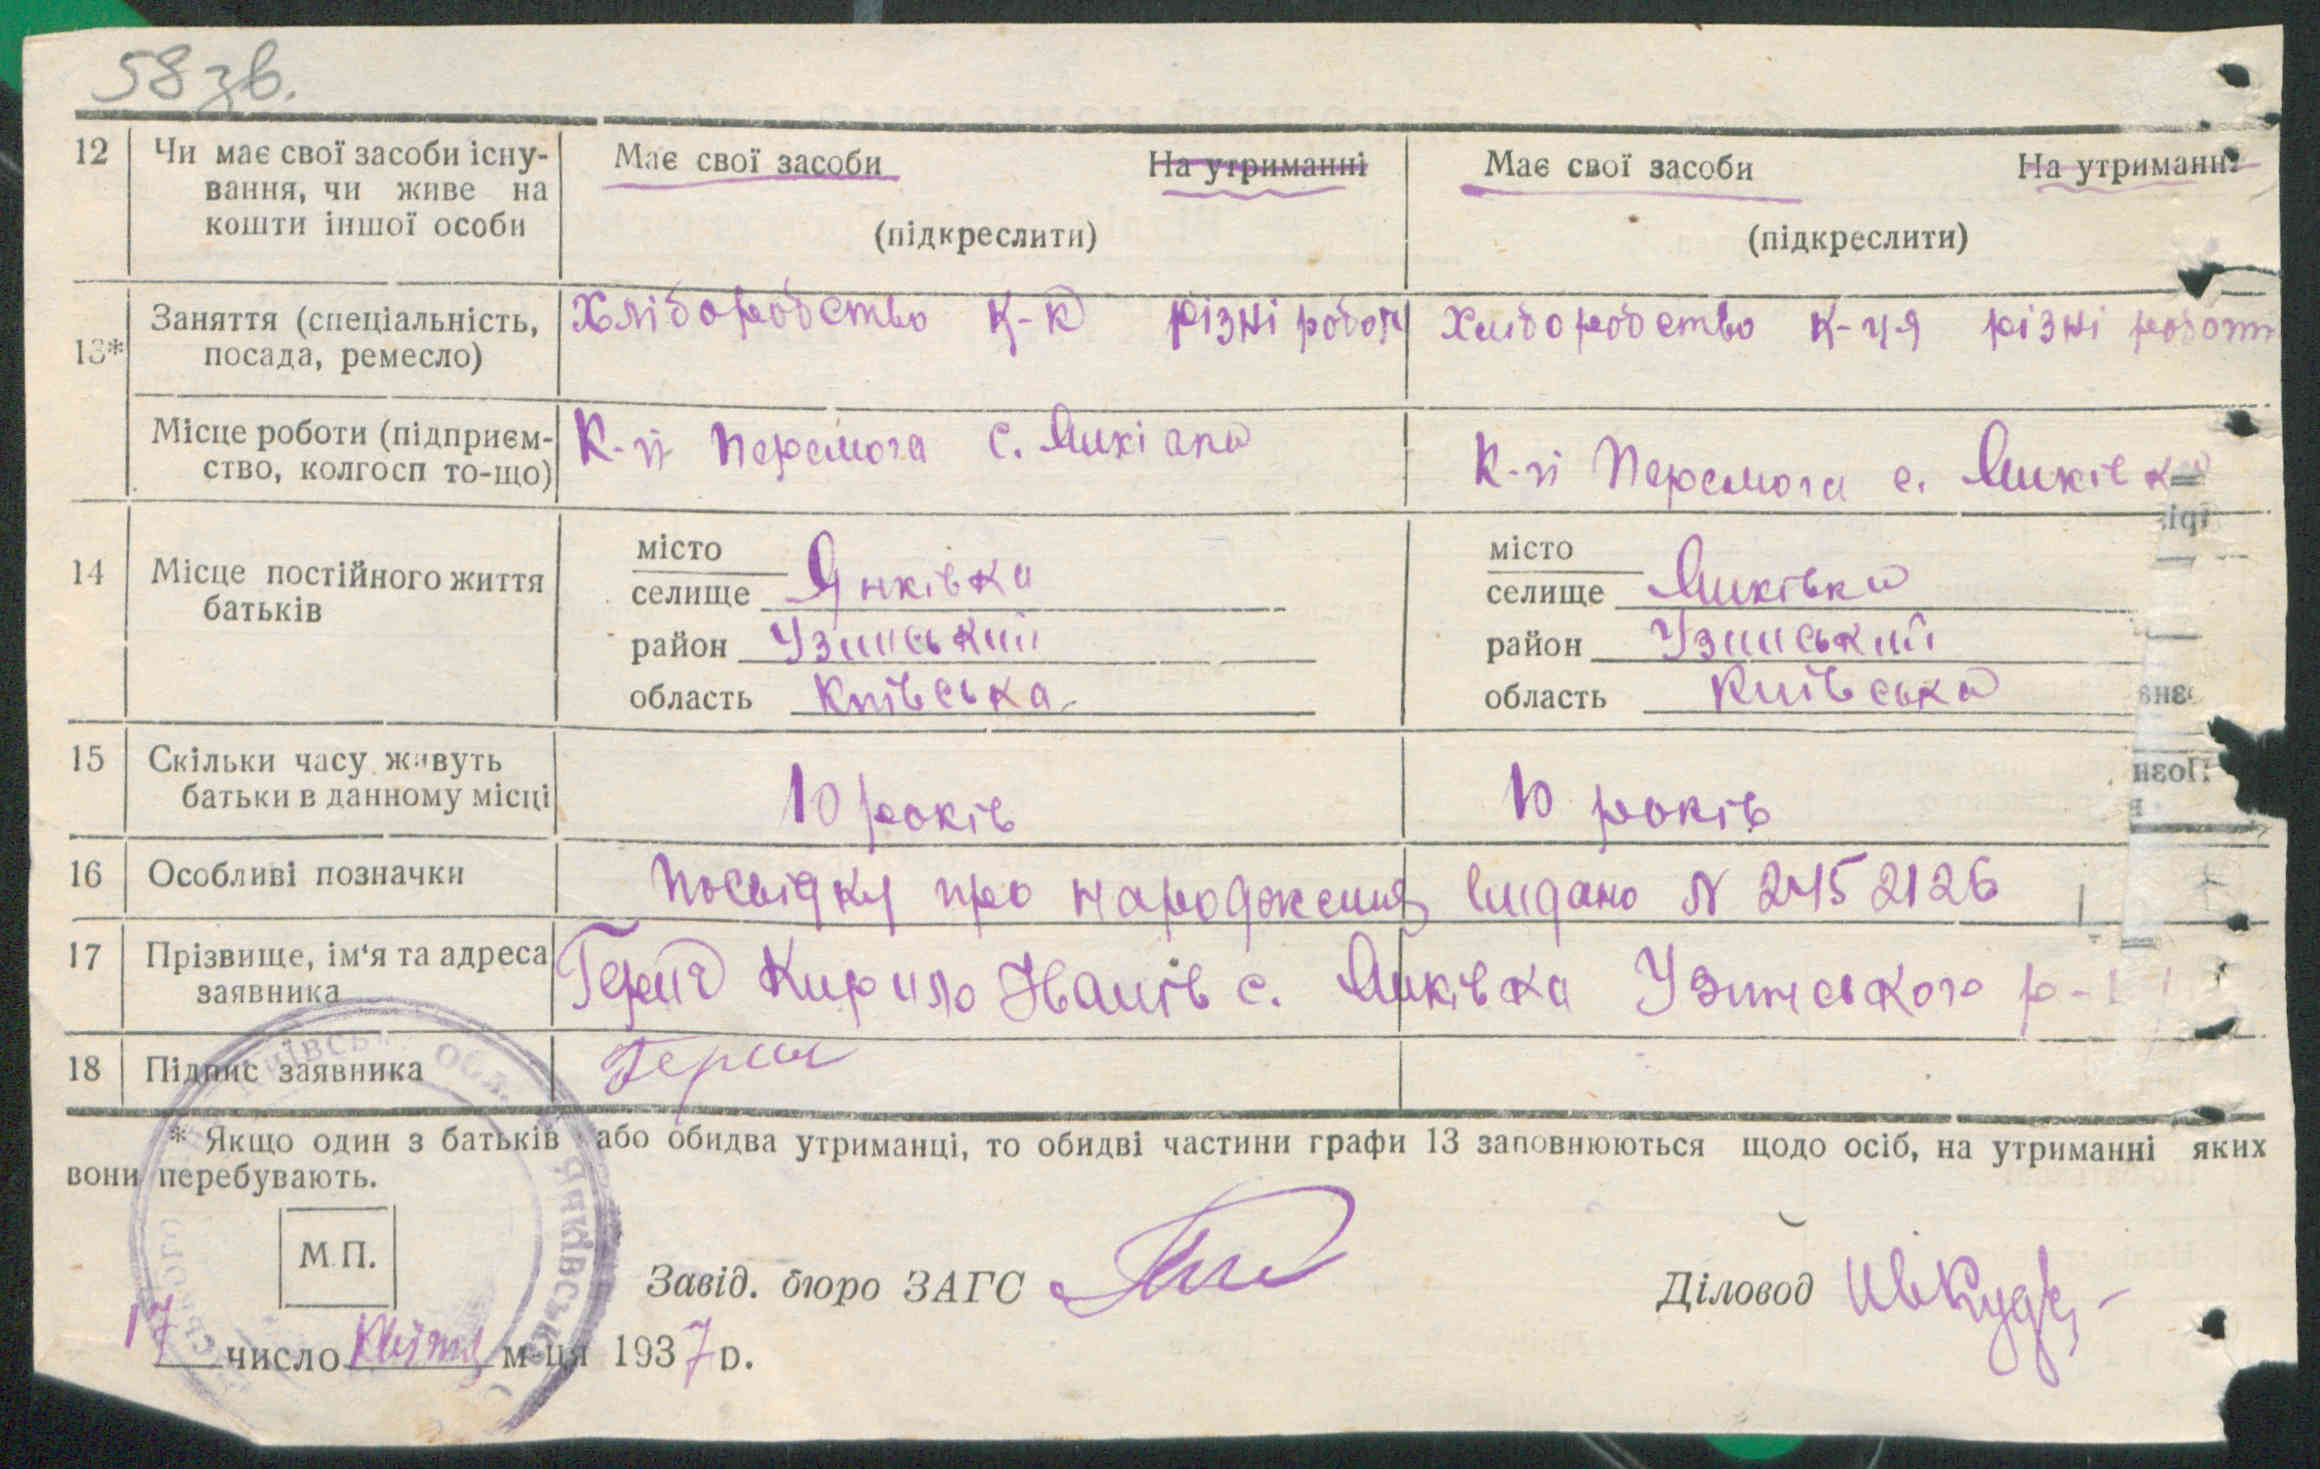 58 зв.
12 Чи має свої засоби існу- Має свої засоби На утриманні Має свої засоби На утриманні
вання, чи живе на
кошти іншої особи (підкреслити) (підкреслити)
Заняття (спеціальність, Хліборобство к-к різні робот Хліборобство к-ця різні робот
13* посада, ремесло)
Місце роботи (підприєм- К-п Перемога с. К-п Перемога с. Янківка
ство, колгосп то-що)
місто місто
14 Місце постійного життя селище Янківка селище Янківка
батьків район Узинський район Узинський
область Київська область Київська
15 Скільки часу живуть
батьки в данному місці 10 років 10 років
16 Особливі позначки Посвідку про народження видано N 2452126
17 Прізвище, ім'я та адреса Кирило с. Янківка Узинського р-
заявника
18 Підпис заявника
* Якщо один з батьків або обидва утриманці, то обидві частини графи 13 заповнюються щодо осіб, на утриманні яких
вони перебувають.
М.П.
Завід. бюро ЗАГС Діловод
17 число квітня м-ця 1937 р.